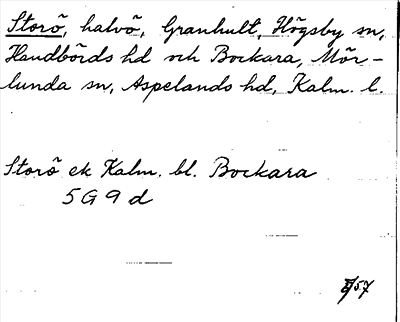 Storö, halvö, Granhult, Högsby sn,
Handbörds hd och Bockara, Mör-
lunda sn, Aspelands hd, Kalm. l.
Storö ek Kalm. bl. Bockara
5G9d
/57